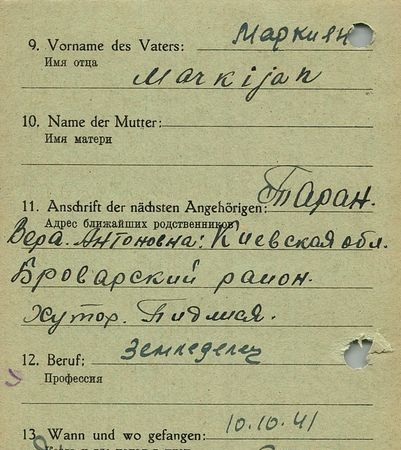 9. Vorname des Vaters: Маркиян
Имя отца
Markijan
10. Name der Mutter:
Имя матери
11. Anschrift der nächsten Angehörigen: Таран.
Адрес ближайших родственников
Вера. Антоновна: Киевская обл.
Броварский район.
Хутор. Пидлися.
12. Beruf: Земледелец
Профессия
13. Wann und wo gefangen: 10.10.41